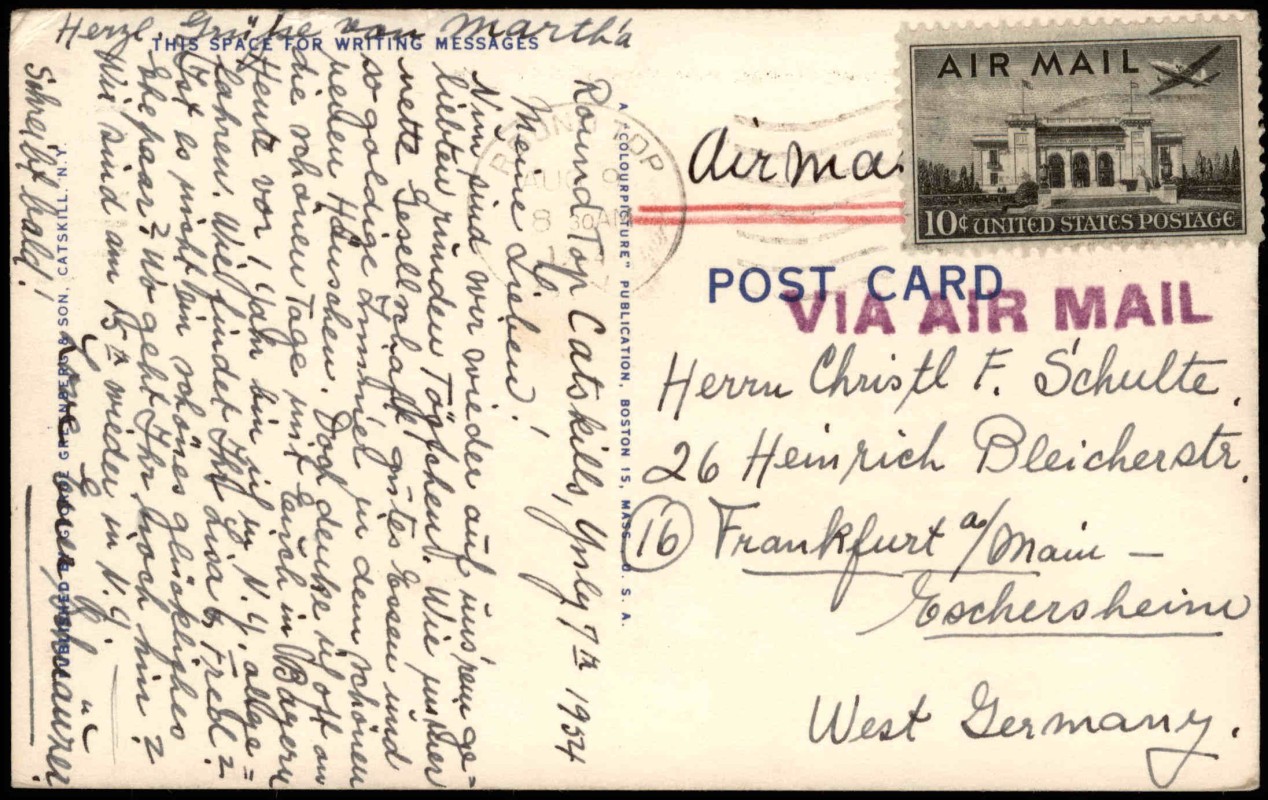 Herzl. Grüße von Martha
THIS SPACE FOR WRITING MESSAGES
Round Top Catskills, 7th 1954
Meine Lieben!
Nun sind wir wieder auf uns'rem ge=
liebten runden Töpfchen. Wie immer
nette Gesellschaft gutes Essen und
so goldige in dem schönen
Häuschen. Doch denke ich oft an
die schönen Tage mit Euch in Bayern
Heute vor 1 Jahr bin ich in N.Y. abge=
fahren. Wie findet Ihr Lisa & Fredl?
Ist es nicht ein schönes glückliches
Ehepaar? Wo geht Ihr noch hin?
Wir sind am 15th wieder in N.Y.
Schreibt bald!
Schnauzer
PUBLISHED BY GEORGE GREENBERG & SON, CATSKILL, N.Y.
A "COLOURPICTURE" PUBLICATION, BOSTON 15, MASS., U. S. A.
ROUND TOP
AUG 9
8 30AM
Air Ma
AIR MAIL
10¢ UNITED STATES POSTAGE
POST CARD
VIA AIR MAIL
Herrn Christl F. Schulte,
26 Heinrich Bleicherstr.
(16) Frankfurt a/Main –
Eschersheim
West Germany.